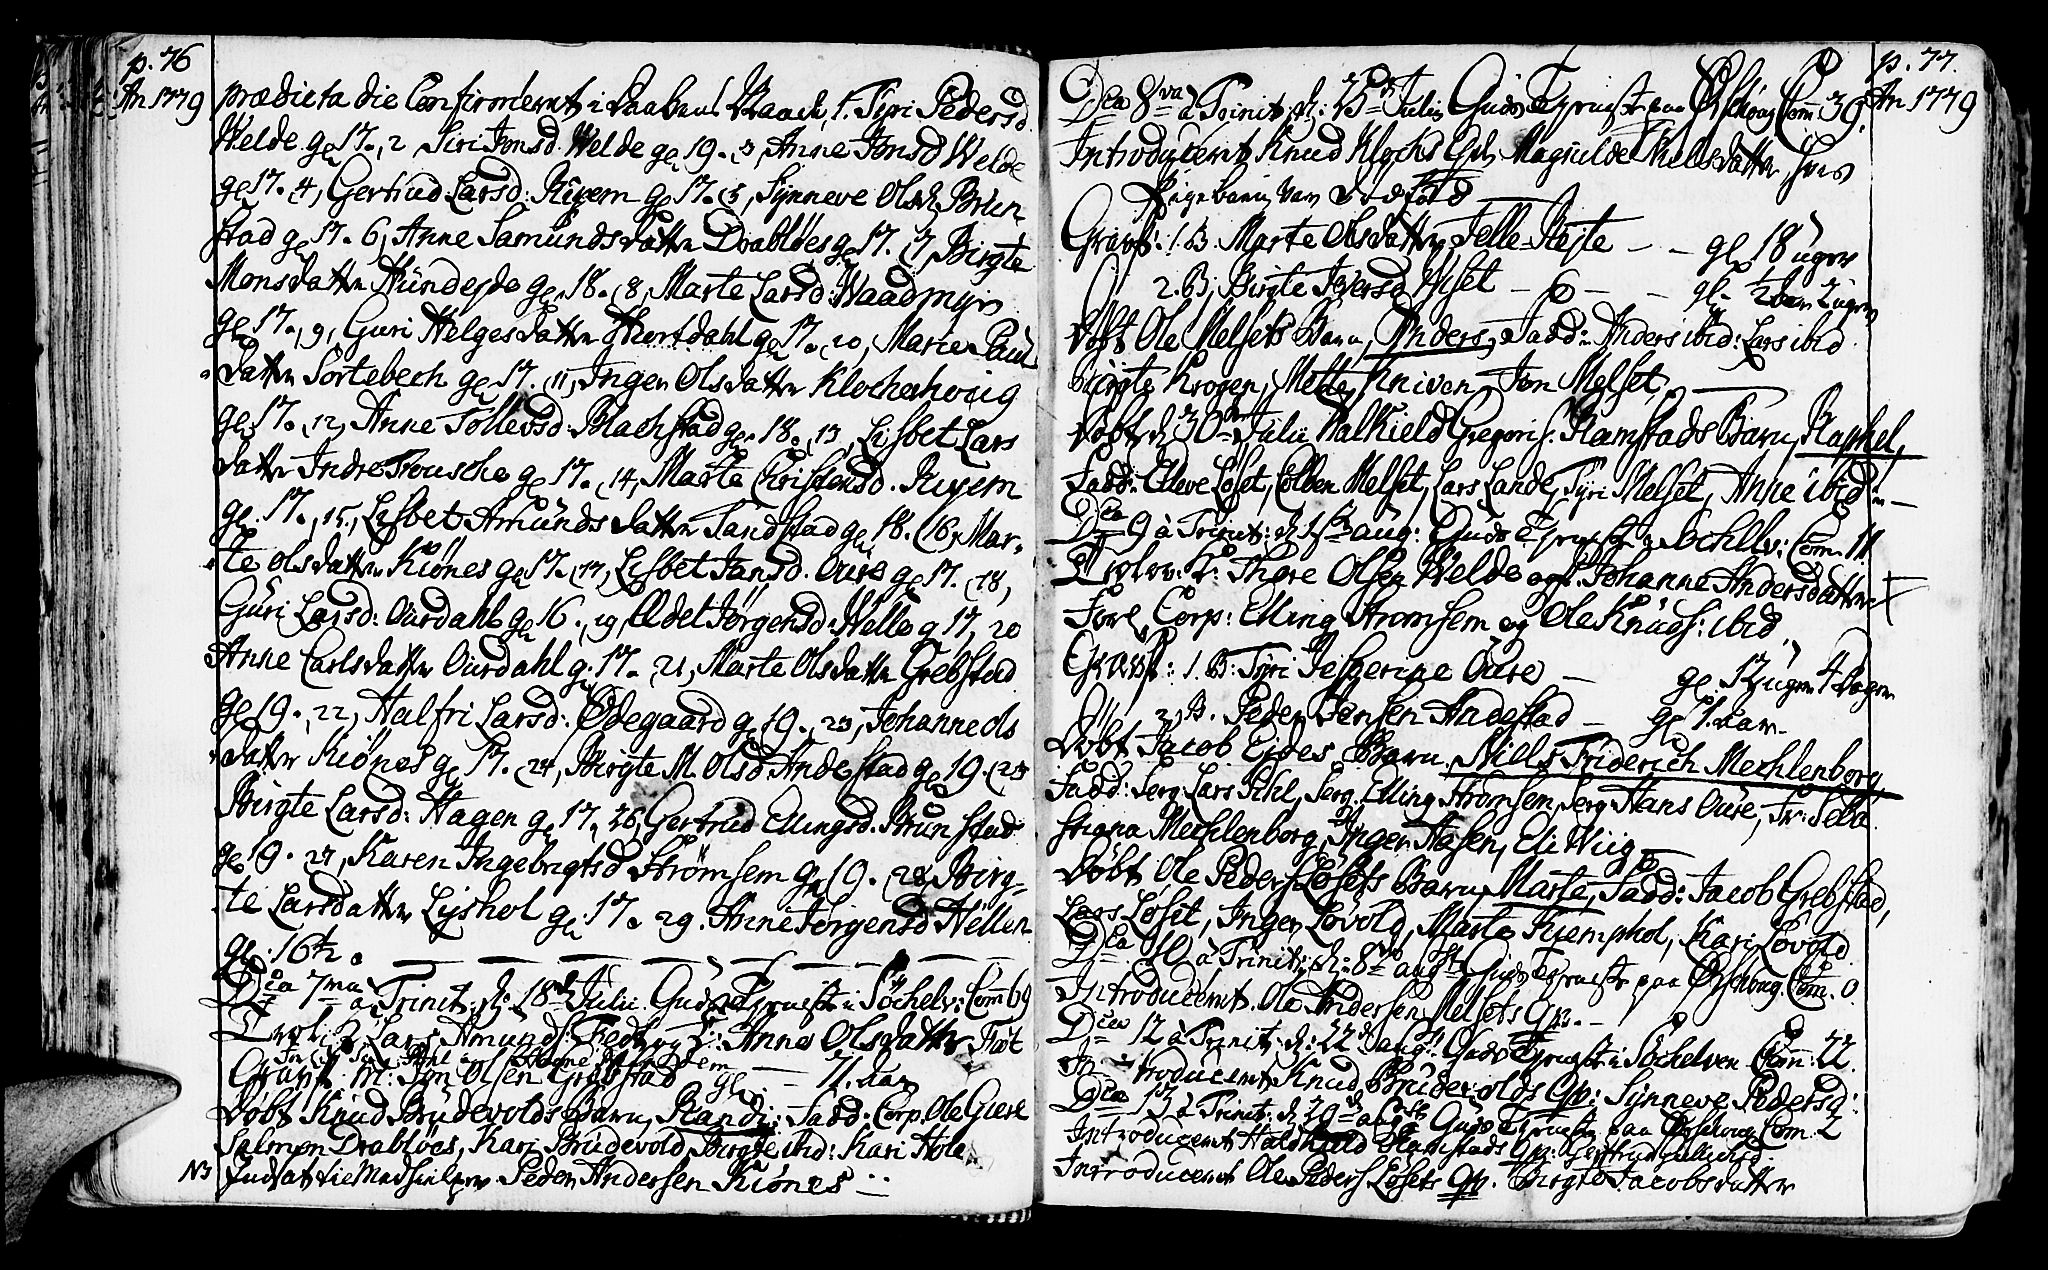 p. 76
An 1779
prædicta die Confirmeret i 1. Tyri Pedersd.
Welde gl 17., 2 Siri Jonsd. Welde gl 19. 3, Anne Jonsd Welde
gl 17. 4, Gertrud Larsd: gl 17. 5, Synneve Olsd. Brun
stad gl 17. 6, Anne Samundsdatter Drabløes gl 17. 7, Birgte
Monsdatter Hundejde gl 18. 8, Marte Larsd: Waadmyr
gl 17., 9, Guri Helgesdatter Hiortdahl gl 17. 10, Marie Paul
datter Sortebech gl 17. 11, Inger Olsdatter Klocherhoug
gl 17. 12, Anne Tollevsd: Blachstad gl. 18. 13, Lisbet Lars
datter Indre gl 17. 14, Marte Christensd.
gl. 17. 15, Lisbet Amundsdatter Tandstad gl 18. 16, Mar-
te Olsdatter Kiønes gl 17. 17, Lisbet Jansd. Oure gl 17. 18,
Guri Larsd: Ourdahl gl 16., 19, Eldet Jørgensd. Welle g 17, 20
Anne Carlsdatter Ourdahl g. 17. 21, Marte Olsdatter Grebstad
gl 19., 22, Halfri Larsd: Ødegaard gl 19., 23, Johanne Ols
datter Kiønes gl 17. 24, Birgte M. Olsd Andestad gl 19. 25
Birgte Larsd: Hagen gl 17. 26, Gertrud Ellingsd. Brunstad
gl 19. 27, Karen Ingebrigtsd Strømsem gl 19. 28, Birg-
te Larsdatter Lyshol gl. 17. 29. Anne Jørgensd Hellen
gl. 16½.
Dca 7ma a Trinit: d: 18d Julii Guds Tjeneste i Søchelv: Com 69
Lars Amunds: og Anne Olsdatter
Grauf. M: Jon Olsen Grebstad gl — 71. aar
Døbt Knud Brudevolds Barn, Randi: Fadd: Corp. Ole Giere
Salmon Drabløes, Kari Brudevold, Birgte ibid: Kari Hole
NB Indsat til Medhielper Peder Andersen Kiønes
p. 77.
An 1779
Dca 8va a Trinit: d: 25d Julii Guds Tjeneste paa Ørschoug Com: 39.
Introduceret Knud Klochs Qv. Magnilde Nielsdatter, hvis
Pigebarn var dødfød
Grauf: 1. B. Marte Olsdatter — — gl 18 uger
2. B, Birgte Iversd — gl. ½ aar 2 uger
Døbt Ole Melsets Barn, Anders, Fadd: Anders ibid: Lars ibid
Birgte Krogen, Mette Kniven, Jon Melset,
Døbt d. 30d Julii Halkield Gregoris: Ramstads Barn, Raphel,
Fadd: Elleve Løset, Colben Melset, Lars Lande, Tyri Melset, Anne ibid:
Dca 9 a Trinit: d. 1ste Aug: Guds Tjeneste i Søchelv: Com. 11
Trolov: Thore Olsen Welde og Johanne Andersdatter
Forl. Corp: Elling Stromsem og Ole Knuds: ibid.
Grauf: 1. B: Tyri Jesperine Oure — gl. 12 uger 4 Dager
2. B. Peder Jensen Andestad — gl 1. aar
Døbt Jacob Ejdes Barn Nills Friderich Mechlenborg
Fadd: Serg Lars Pihl, Serg. Elling Stromsem, Serg Hans Oure, Fr: Seba
stiana Mechlenborg, Inger Aasen, Eli Wiig
Døbt Ole Peders: Løsets Barn, Marte, Fadd: Jacob Grebstad,
Lars Løset, Inger Lovold, Marte Kiemphol, Kari Lovold
Dca 10 a Trinit: d: 8d augst Guds Tjeneste paa Ørschoug Com. 0
Introduceret Ole Andersen Melsets Qv. —
Dca 12 a Trinit: d: 22d augst Guds Tjeneste i Søchelven Com: 22
Introduceret Knud Brudevolds Qv: Synneve Pedersd:
Dca 13 a Trinit: d 29d augst Guds Tjeneste paa Ørschoug Com. 2
Introduceret Halkield Ramstads Qv: Gertrud
Introduceret Ole Peders Løsets Qv. Birgte Jacobsdatter